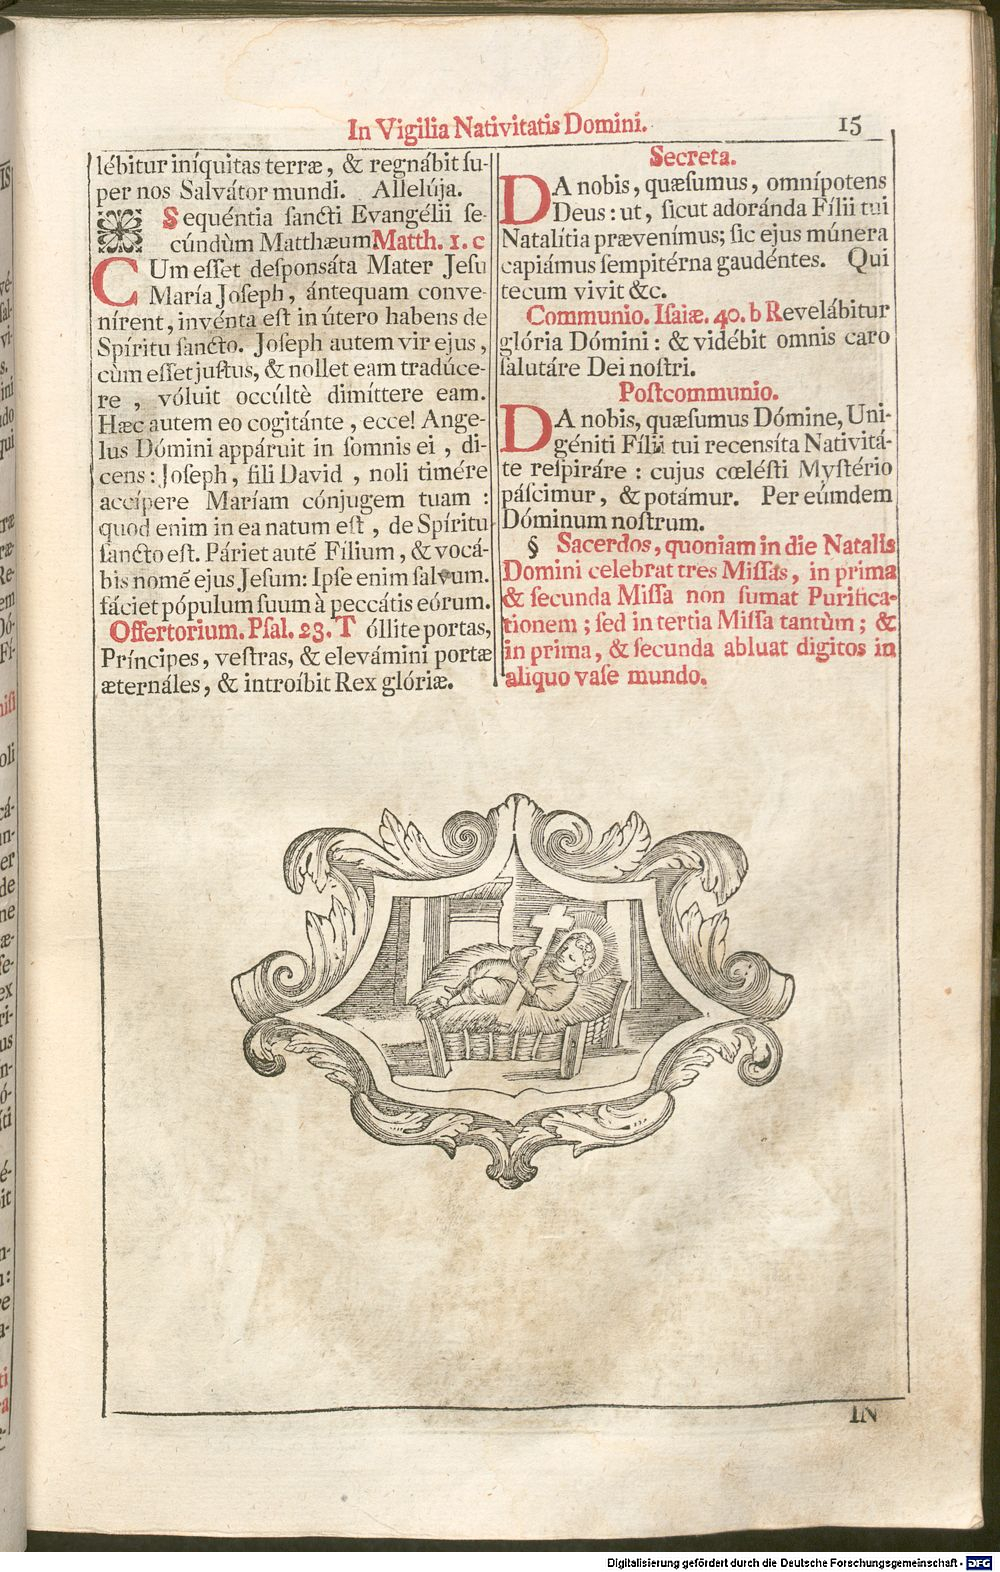 In Vigilia Nativitatis Domini.
15
lébitur iníquitas terræ, & regnábit ſu-
per nos Salvátor mundi. Allelúja.
Sequéntia ſancti Evangélii ſe-
cúndùm Matthæum Matth. 1. c
CUm eſſet deſponsáta Mater Jeſu
María Joſeph, ántequam conve-
nírent, invénta eſt in útero habens de
Spíritu ſancto. Joſeph autem vir ejus,
cùm eſſet juſtus, & nollet eam tradúce-
re, vóluit occúltè dimíttere eam.
Hæc autem eo cogitánte, ecce! Ange-
lus Dómini appáruit in ſomnis ei, di-
cens: Joſeph, fili David, noli timére
accípere Maríam cónjugem tuam:
quod enim in ea natum eſt, de Spíritu
ſancto eſt. Páriet autē Fílium, & vocá-
bis nomē ejus Jeſum: Ipſe enim ſalvum.
fáciet pópulum ſuum à peccátis eórum.
Offertorium. Pſal. 23. Tóllite portas,
Príncipes, veſtras, & elevámini portæ
æternáles, & introíbit Rex glóriæ.
Secreta.
DA nobis, quæſumus, omnípotens
Deus: ut, ſicut adoránda Fílii tui
Natalítia prævenímus; ſic ejus múnera
capiámus ſempitérna gaudéntes. Qui
tecum vivit &c.
Communio. Iſaiæ. 40. b Revelábitur
glória Dómini: & vidébit omnis caro
ſalutáre Dei noſtri.
Poſtcommunio.
DA nobis, quæſumus Dómine, Uni-
géniti Fílii tui recensíta Nativitá-
te reſpiráre: cujus cœléſti Myſtério
páſcimur, & potámur. Per eúmdem
Dóminum noſtrum.
§ Sacerdos, quoniam in die Natalis
Domini celebrat tres Miſſas, in prima
& ſecunda Miſſa non ſumat Purifica-
tionem; ſed in tertia Miſſa tantùm; &
in prima, & ſecunda abluat digitos in
aliquo vaſe mundo.
IN
Digitalisierung gefördert durch die Deutsche Forschungsgemeinschaft - DFG